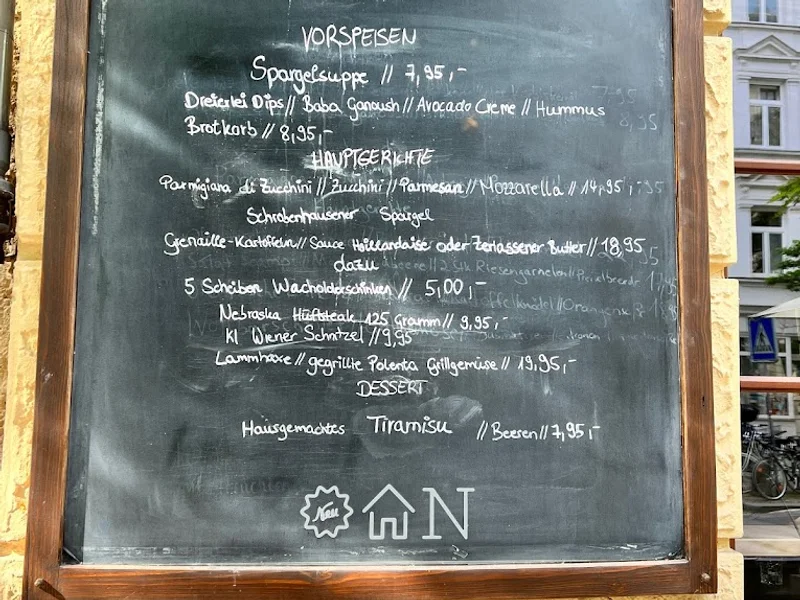 VORSPEISEN
Spargelsuppe // 7,95,-
Dreierlei Dips // Baba Ganoush // Avocado Creme // Hummus
Brotkorb // 8,95,-
HAUPTGERICHTE
Parmigiana di Zucchini // Zucchini // Parmesan // Mozzarella // 14,95,-
Schrobenhausener Spargel
Grenaille-Kartoffeln // Sauce Hollandaise oder Zerlassener Butter // 18,95
dazu
5 Scheiben Wacholderschinken // 5,00,-
Nebraska Hüftsteak 125 Gramm // 9,95,-
Kl Wiener Schnitzel // 9,95
Lammhaxe // gegrillte Polenta Grillgemüse // 19,95,-
DESSERT
Hausgemachtes Tiramisu // Beeren // 7,95,-
Neu N